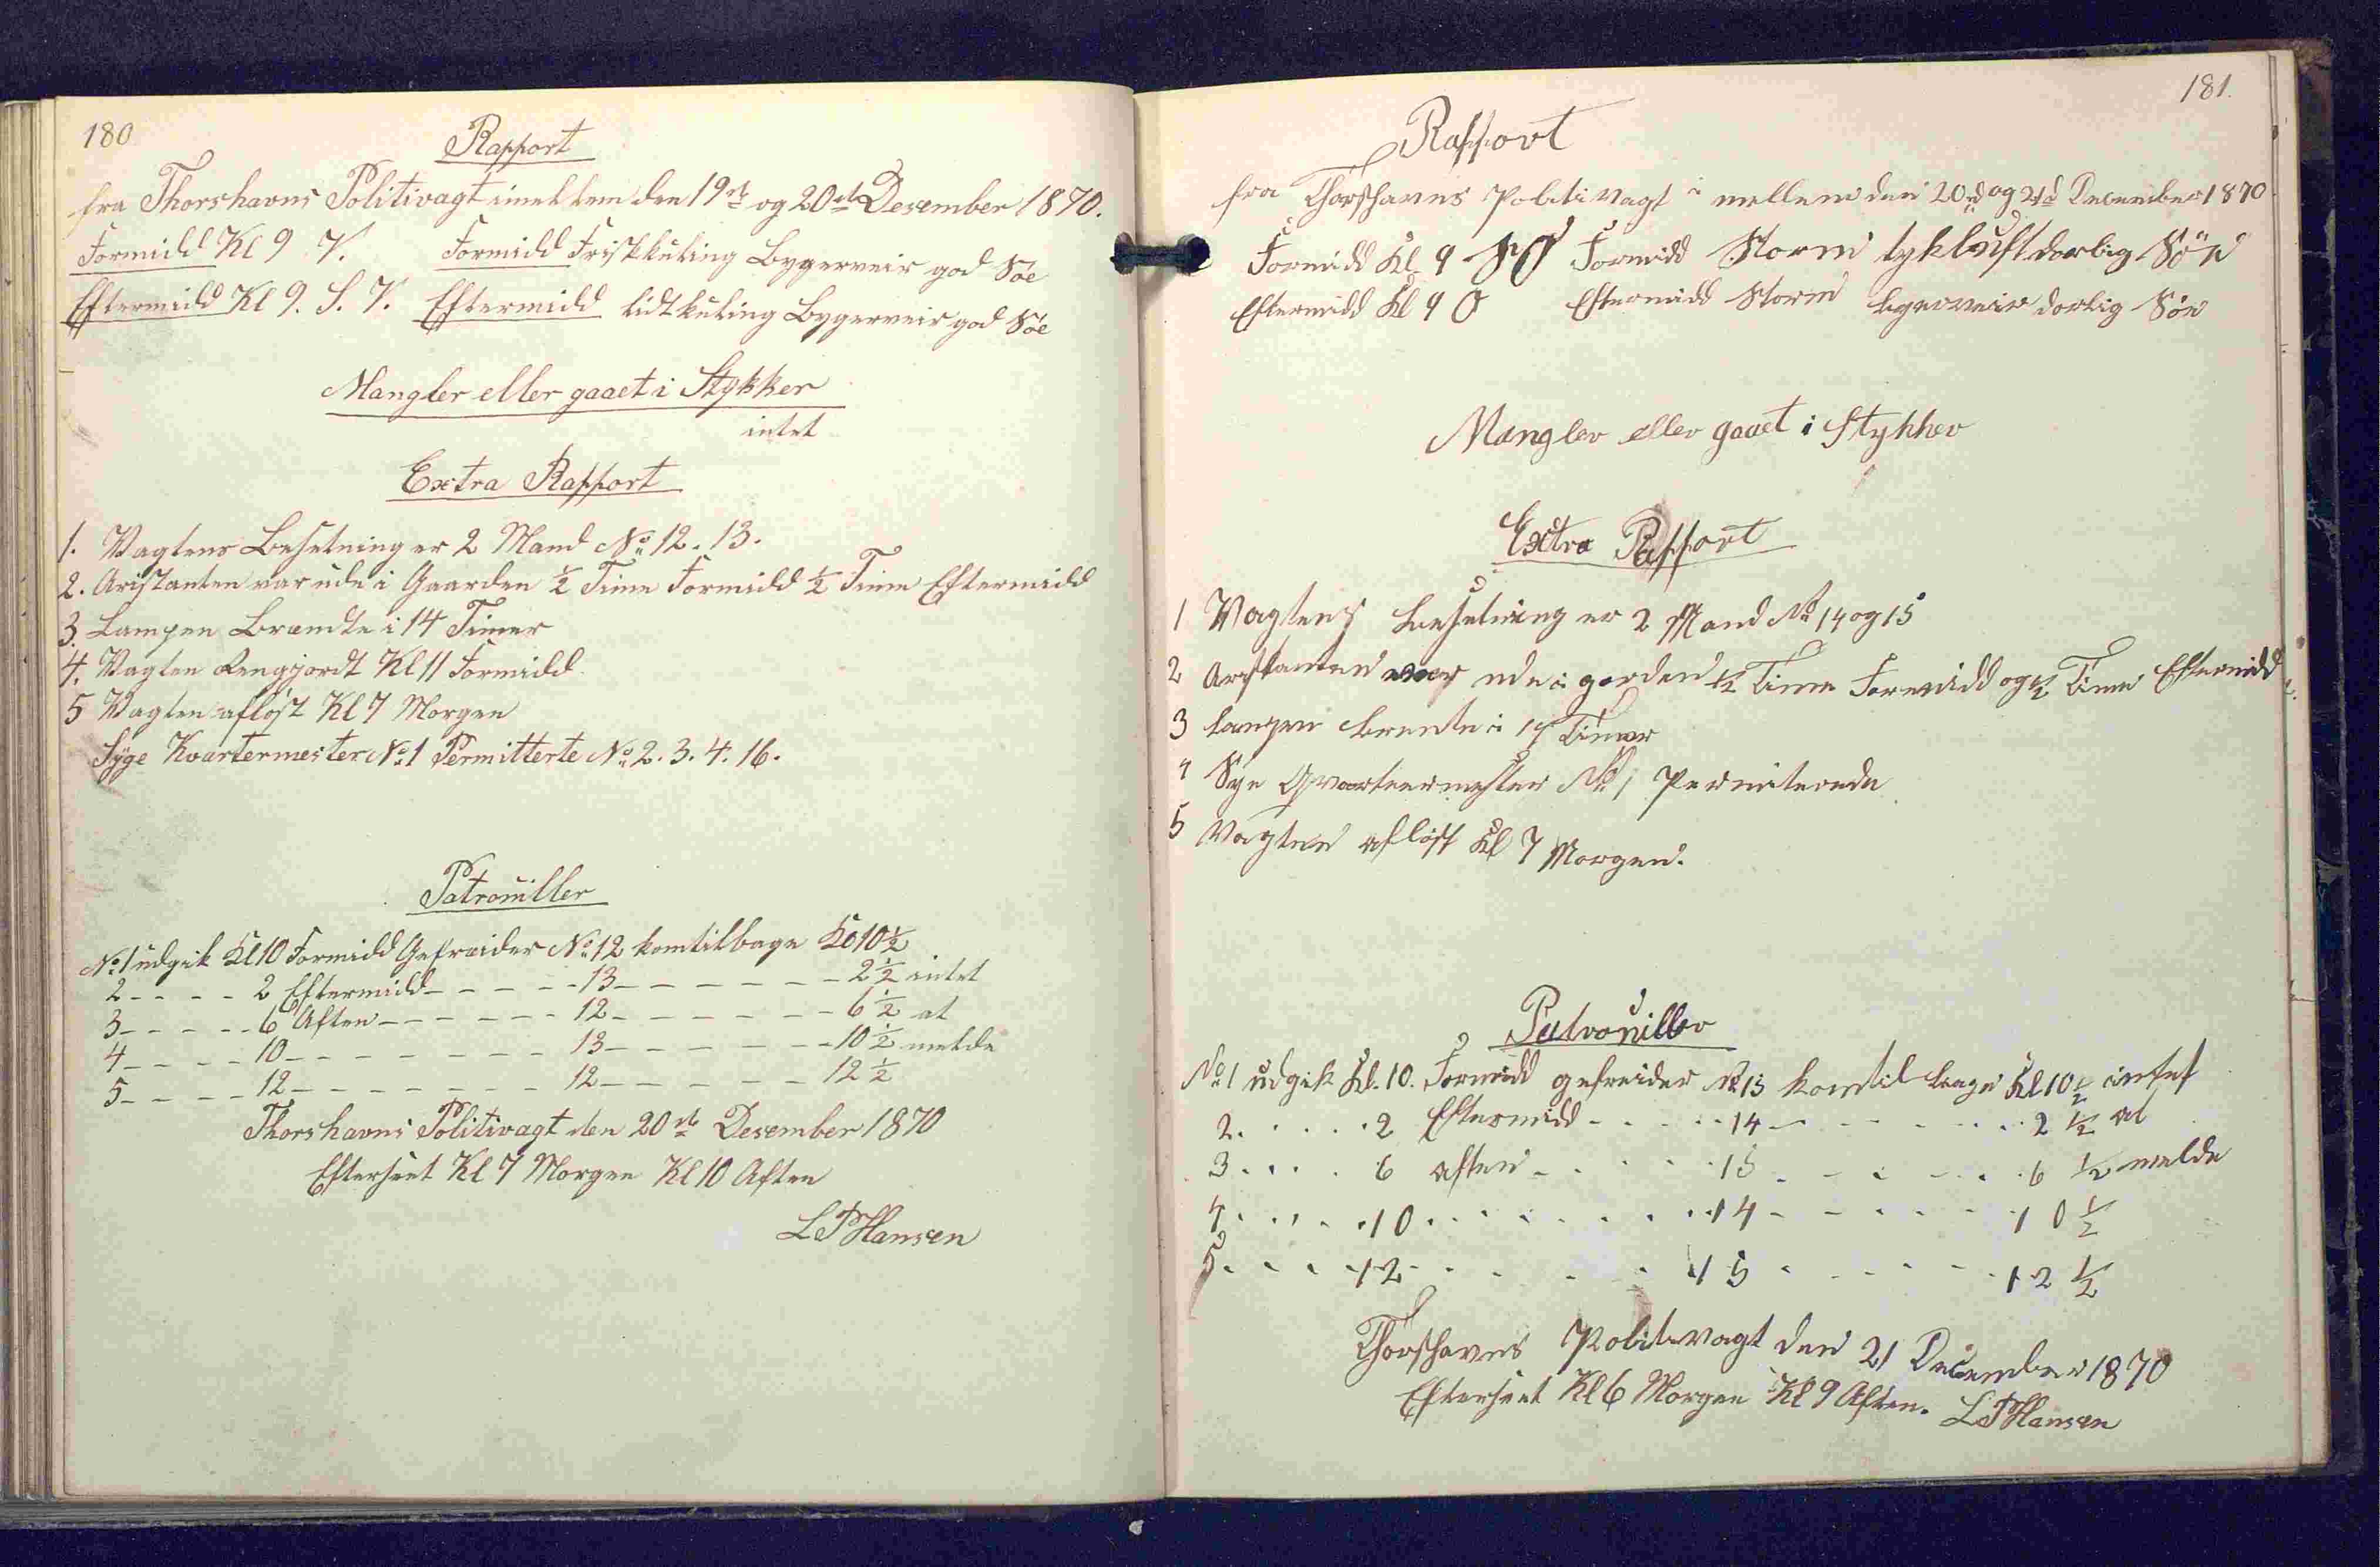 180
Rapport
fra Thorshavns Politivagt imellem den 19de og 20de Desember 1870.
Formidd Kl 9 V. Formidd Friskkuling Bygerveir god Søe
Eftermidd Kl 9. S. V. Eftermidd lidtkuling Bygerveir god Søe
Mangler eller gaaet i Stykker
intet
Extra Rapport
1. Vagtens Besetning er 2 Mand No 12. 13.
2. Aristanten var ude i Gaarden ½ Time Formidd ½ Time Eftermidd
3. Lampen Brændte i 14 Timer
4. Vagten Rengjordt Kl 11 Formidd
5 Vagten afløst Kl 7 Morgen
Syge Kvartermester No 1 Permitterte No 2. 3. 4. 16.
Patrouiller
No 1 udgik Kl 10 Formidd Gefreider No 12 kom tilbage Kl 10½
2 - - - - 2 Eftermidd - - - - - 13 - - - - - - - 2½ intet
3 - - - - - 6 Aften - - - - - - 12 - - - - - - - 6½ at
4 - - - - 10 - - - - - - - - 13 - - - - - - - 10½ melde
5 - - - - 12 - - - - - - - - 12 - - - - - - 12½
Thorshavns Politivagt den 20de Desember 1870
Efterseet Kl 7 Morgen Kl 10 Aften
L P Hansen
181.
Rapport
fra Thorshavns Politivagt i mellem den 20d og 21d December 1870
Formidd Kl 9 SO Formidd Storm tykluft dorlig Søe
Eftermidd Kl 9 O Eftermidd Storm bygerveir dorlig Søe
Mangler eller gaaet i Stykker
Extra Rapport
1 Vagtens besetning er 2 Mand No 14 og 15
2 var ude i gorden ½ Time Formidd og ½ Time Eftermidd
3 lampen brente i 14 Timer
4 Sye Qvarteermester No 1 Permiterede
5 Vagten afløst Kl 7 Morgen.
Patrouiller
No 1 udgik Kl. 10. Formidd gefreider No 15 kom til bage Kl 10½ intet
2. . . . . . 2 Eftermidd - . . . . 14 - . - . - . . . 2½ at
3. . . . 6 aften - . . . . 15 - . - . - . . 6½ melde
4. . . . . 10 . . . . . . . . 14 - - . - . - . 10½
5. . . . 12 . . . . . . 15 . . - . - . 12½
Thorshavns Politivagt den 21 December 1870
Efterseet Kl 6 Morgen Kl 9 Aften.
L P Hansen